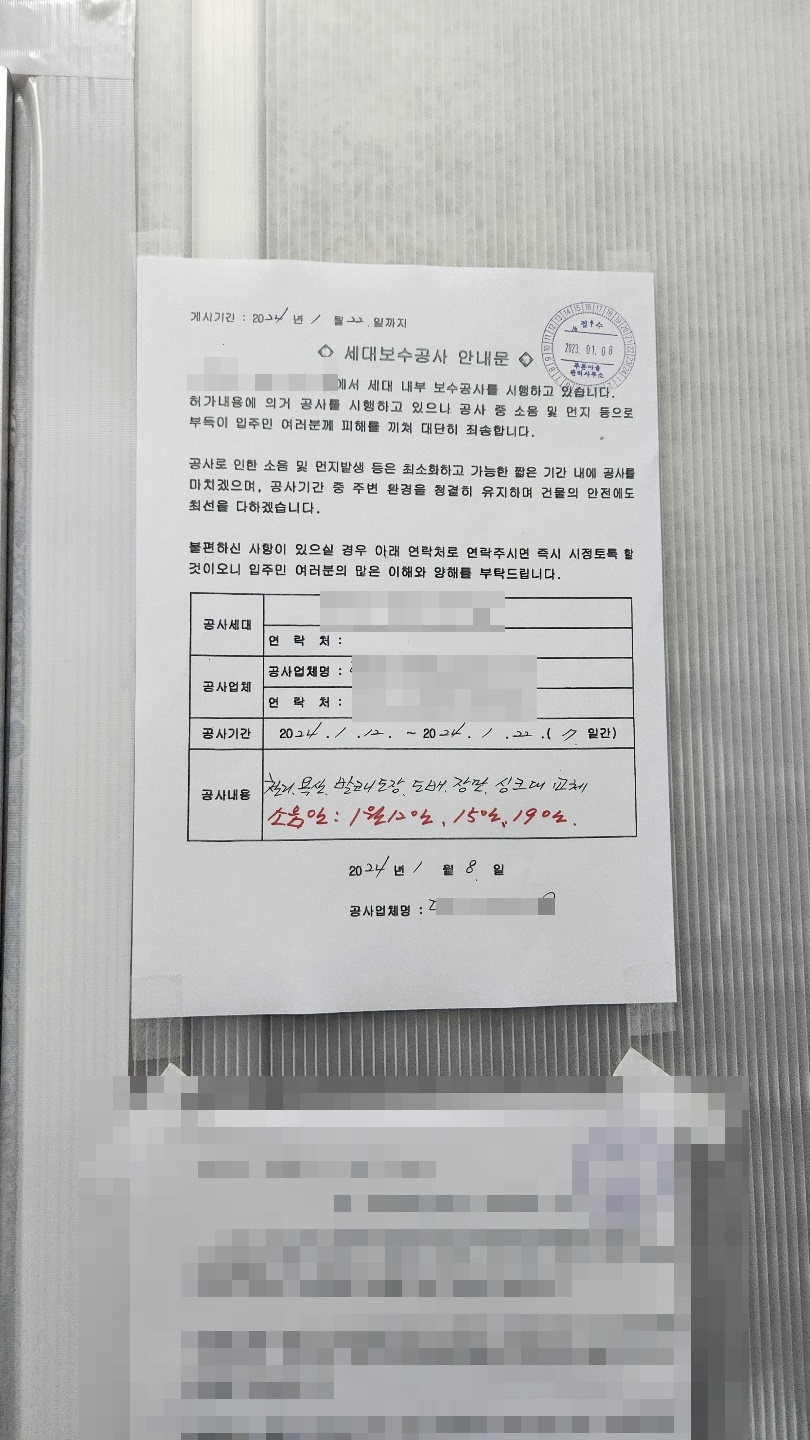 게시기간 : 2024 년 1 월 22.일까지
접수
2023. 01. 08
푸른마을
관리사무소
◇ 세대보수공사 안내문 ◇
에서 세대 내부 보수공사를 시행하고 있습니다.
허가내용에 의거 공사를 시행하고 있으나 공사 중 소음 및 먼지 등으로
부득이 입주민 여러분께 피해를 끼쳐 대단히 죄송합니다.
공사로 인한 소음 및 먼지발생 등은 최소화하고 가능한 짧은 기간 내에 공사를
마치겠으며, 공사기간 중 주변 환경을 청결히 유지하며 건물의 안전에도
최선을 다하겠습니다.
불편하신 사항이 있으실 경우 아래 연락처로 연락주시면 즉시 시정토록 할
것이오니 입주민 여러분의 많은 이해와 양해를 부탁드립니다.
공사세대
연 락 처 :
공사업체
공사업체명 :
연 락 처 :
공사기간 2024.1.12. ~ 2024.1.22.( 7 일간)
공사내용 철거.욕실.발코니도장.도배.장판.싱크대 교체
소음일: 1월12일, 15일, 19일.
2024년 1 월 8. 일
공사업체명 :